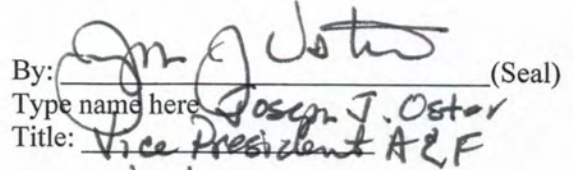 By: (Seal)
Type name here Joseph J. Oster
Title: Vice President A&F